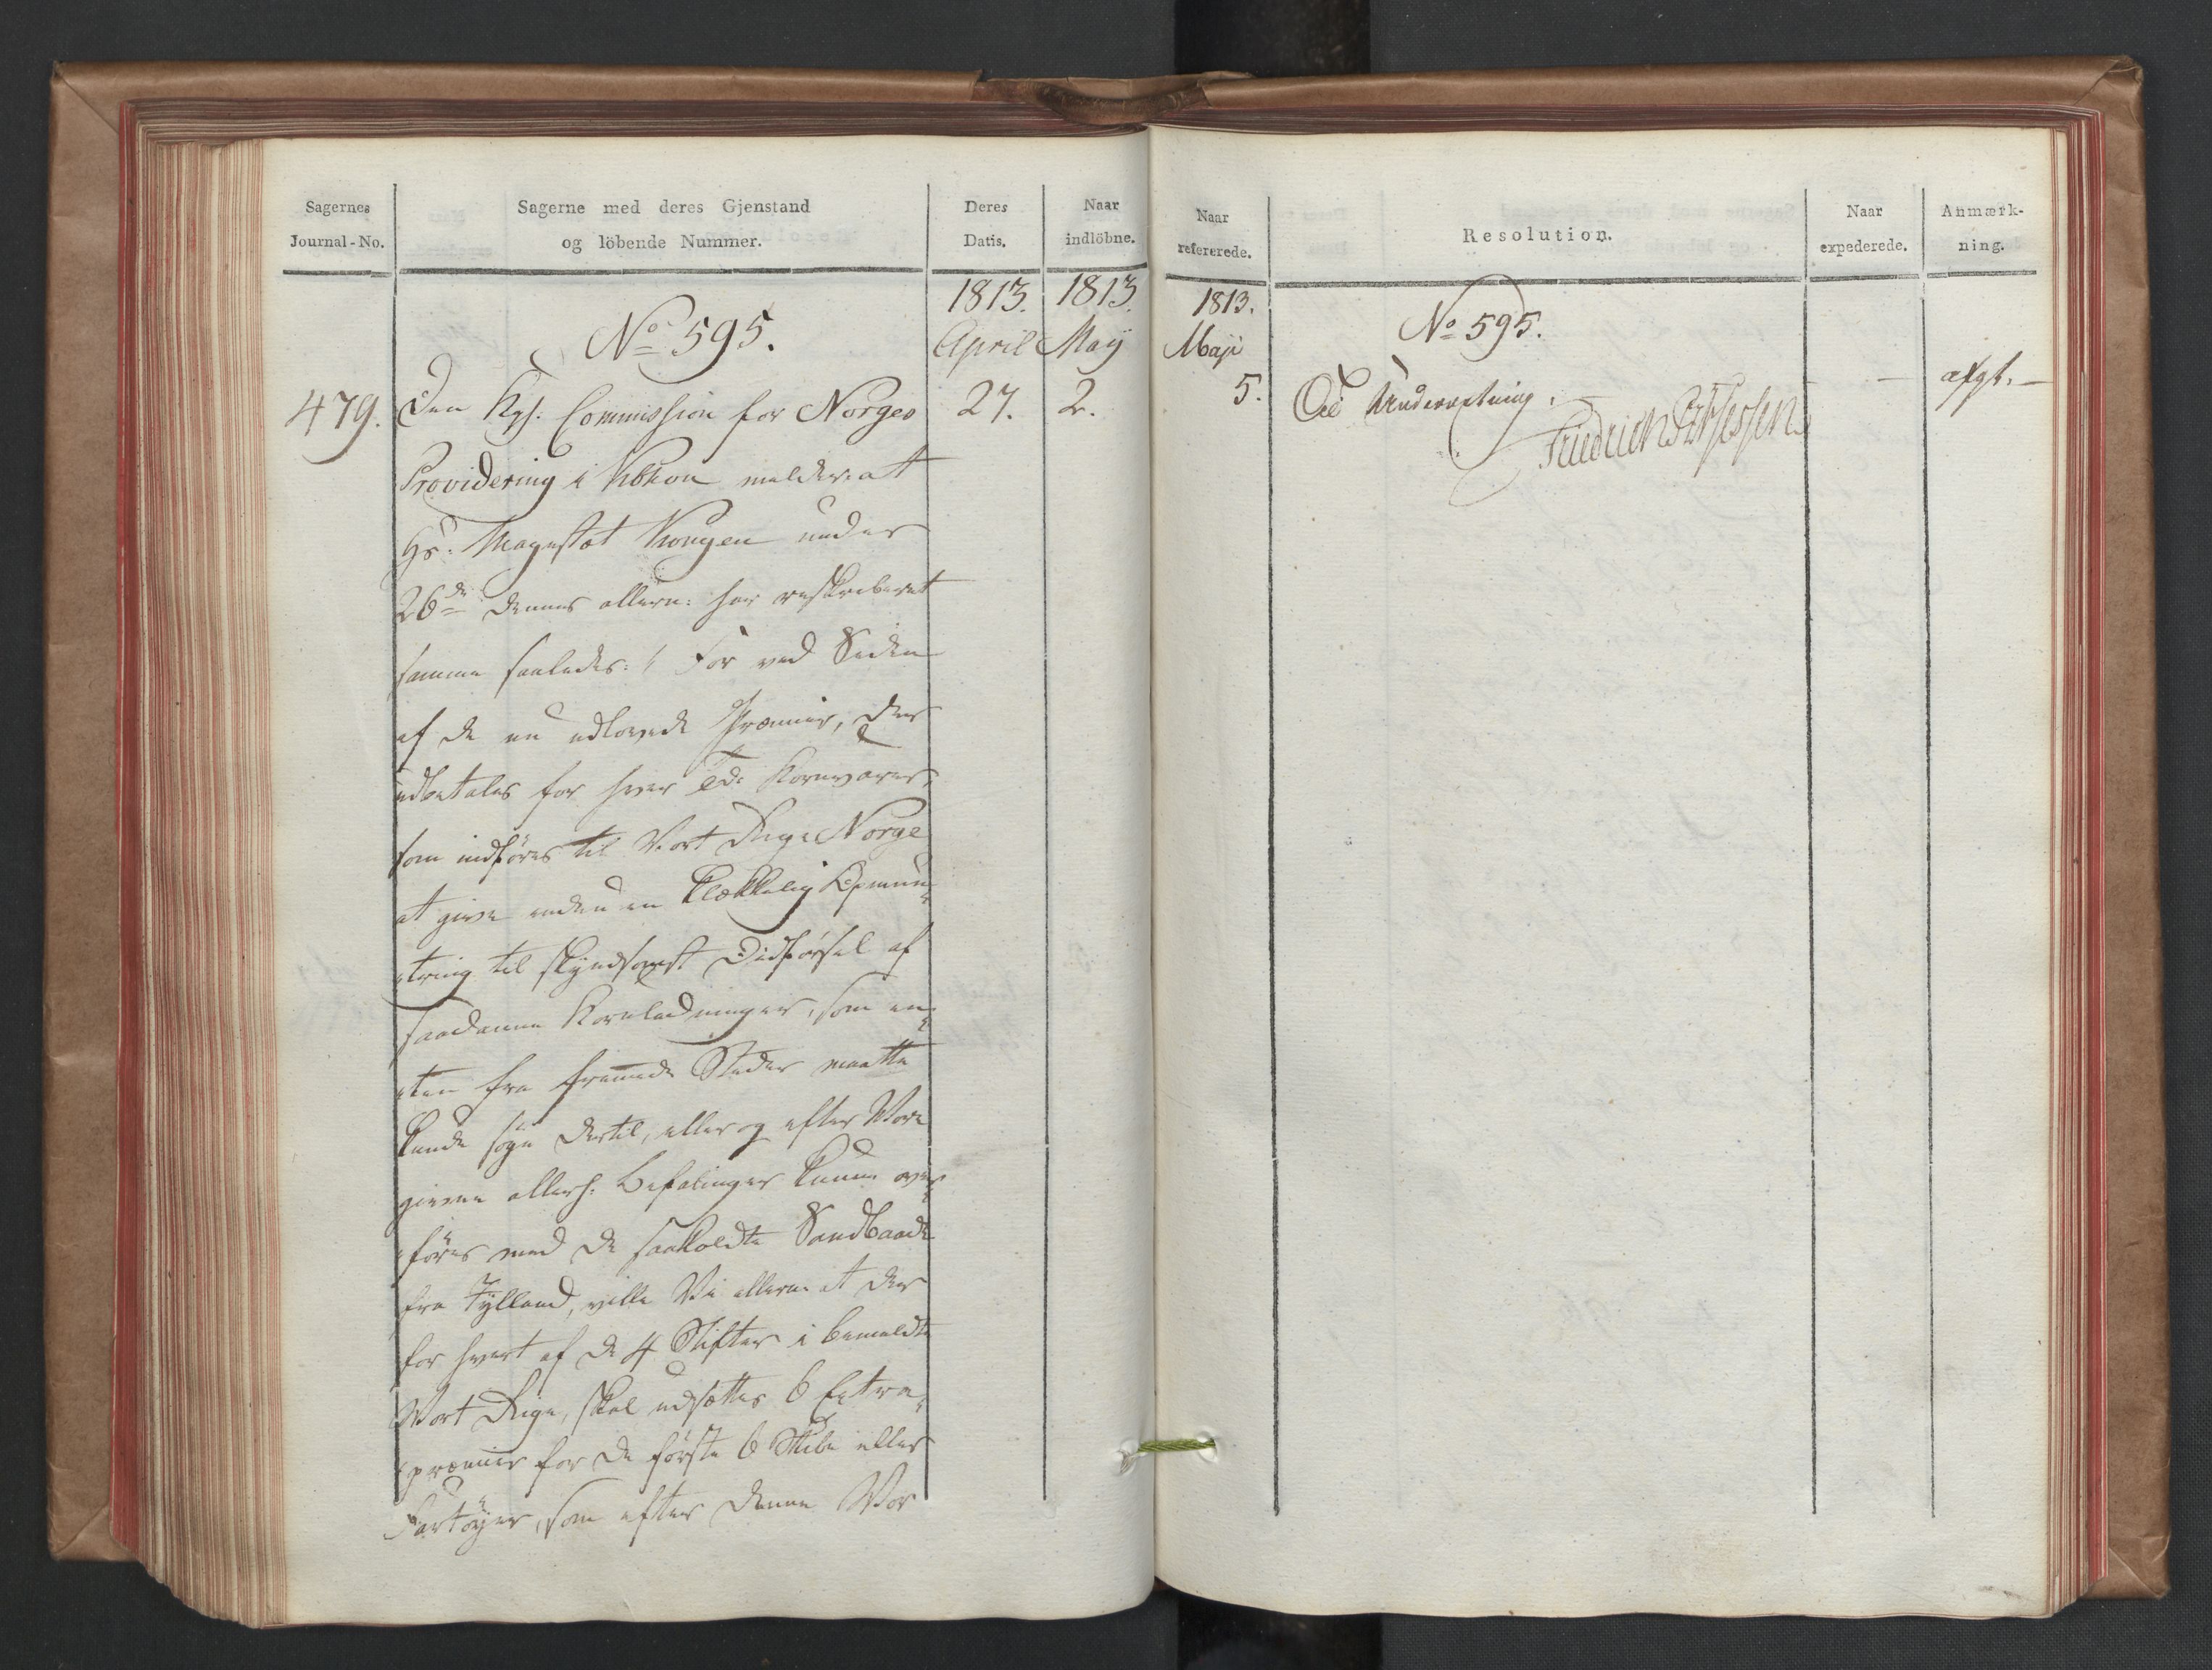 Sagernes
Journal-No.
Sagerne med deres Gjenstand
og löbende Nummer.
Deres
Datis.
Naar
indlöbne.
1813.
April
27.
1813.
Maij
2.
No 595.
479.
Den Kgl. Commission for Norges
Providering i Kbhvn melder at
Hs: Majestæt Kongen under
26de dennes allern: har reskriberet
samme saaledes: For ved Siden
af de nu udlovede Præmier, der
udbetales for hver Tde Kornvarer,
som indföres til Vort Rige Norge
at give endnu en klækkelig Opmun„
„tring til skyndsomst Didförsel af
saadanne Kornladninger, som en„
„ten fra fremede Steder maatte
kunde söge dertil, eller og efter Vore
givne allerh. Befalinger kunne over„
„föres med de saakaldte Sandbaade
fra Jylland, ville Vi allern: at der
for hvert af de 4 Stifter i bemeldte
Vort Rige, skal udsættes 6 Extra„
„præmier for de förste 6 Skibe eller
Fartöyer, som efter denne Vor
Naar
refererede.
Resolution.
Naar
expederede.
Anmærk-
ning.
1813.
Maji
5.
No 595.
Til Underretning.
Friedrich
— afgt. —